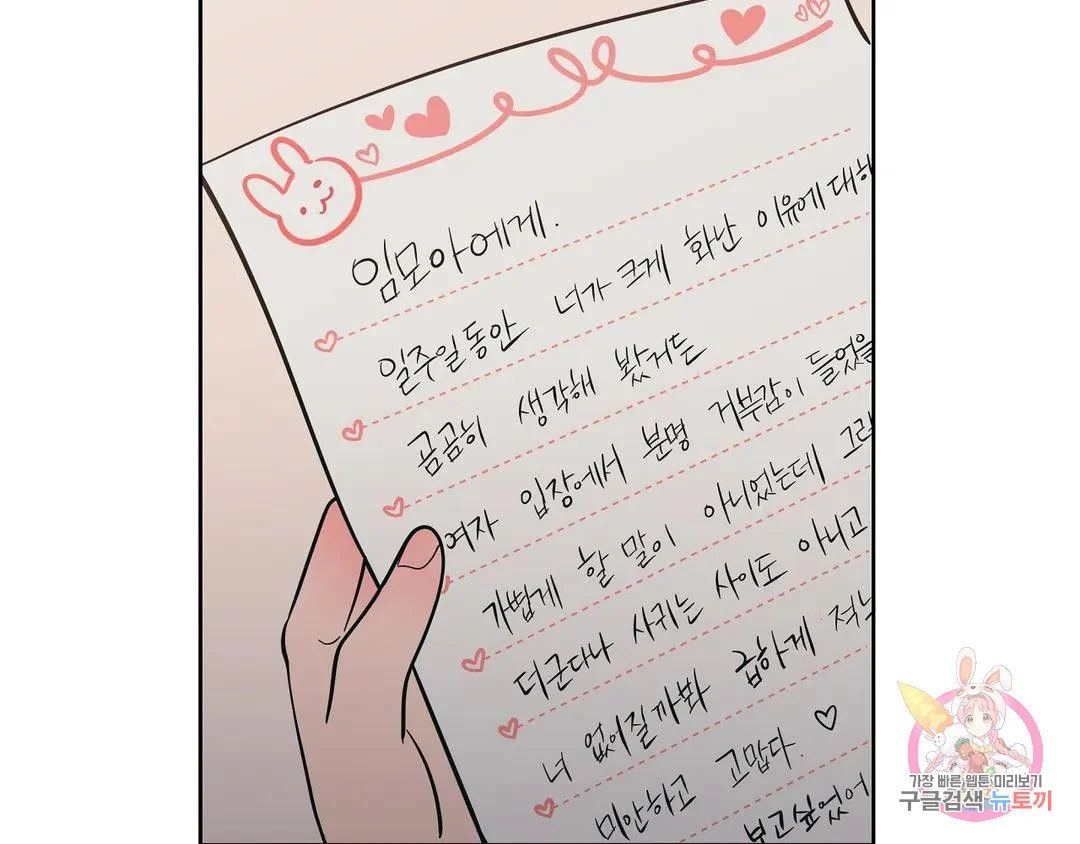 임모아에게.
일주일동안 너가 크게 화난 이유에 대해
곰곰히 생각해 봤거든
여자 입장에서 분명 거부감이 들었을
가볍게 할 말이 아니었는데 그
더군다나 사귀는 사이도 아니고
너 없어질까봐 급하게 적
미안하고 고맙다. ♡
보고싶었어
가장 빠른 웹툰 미리보기
구글검색 뉴토끼